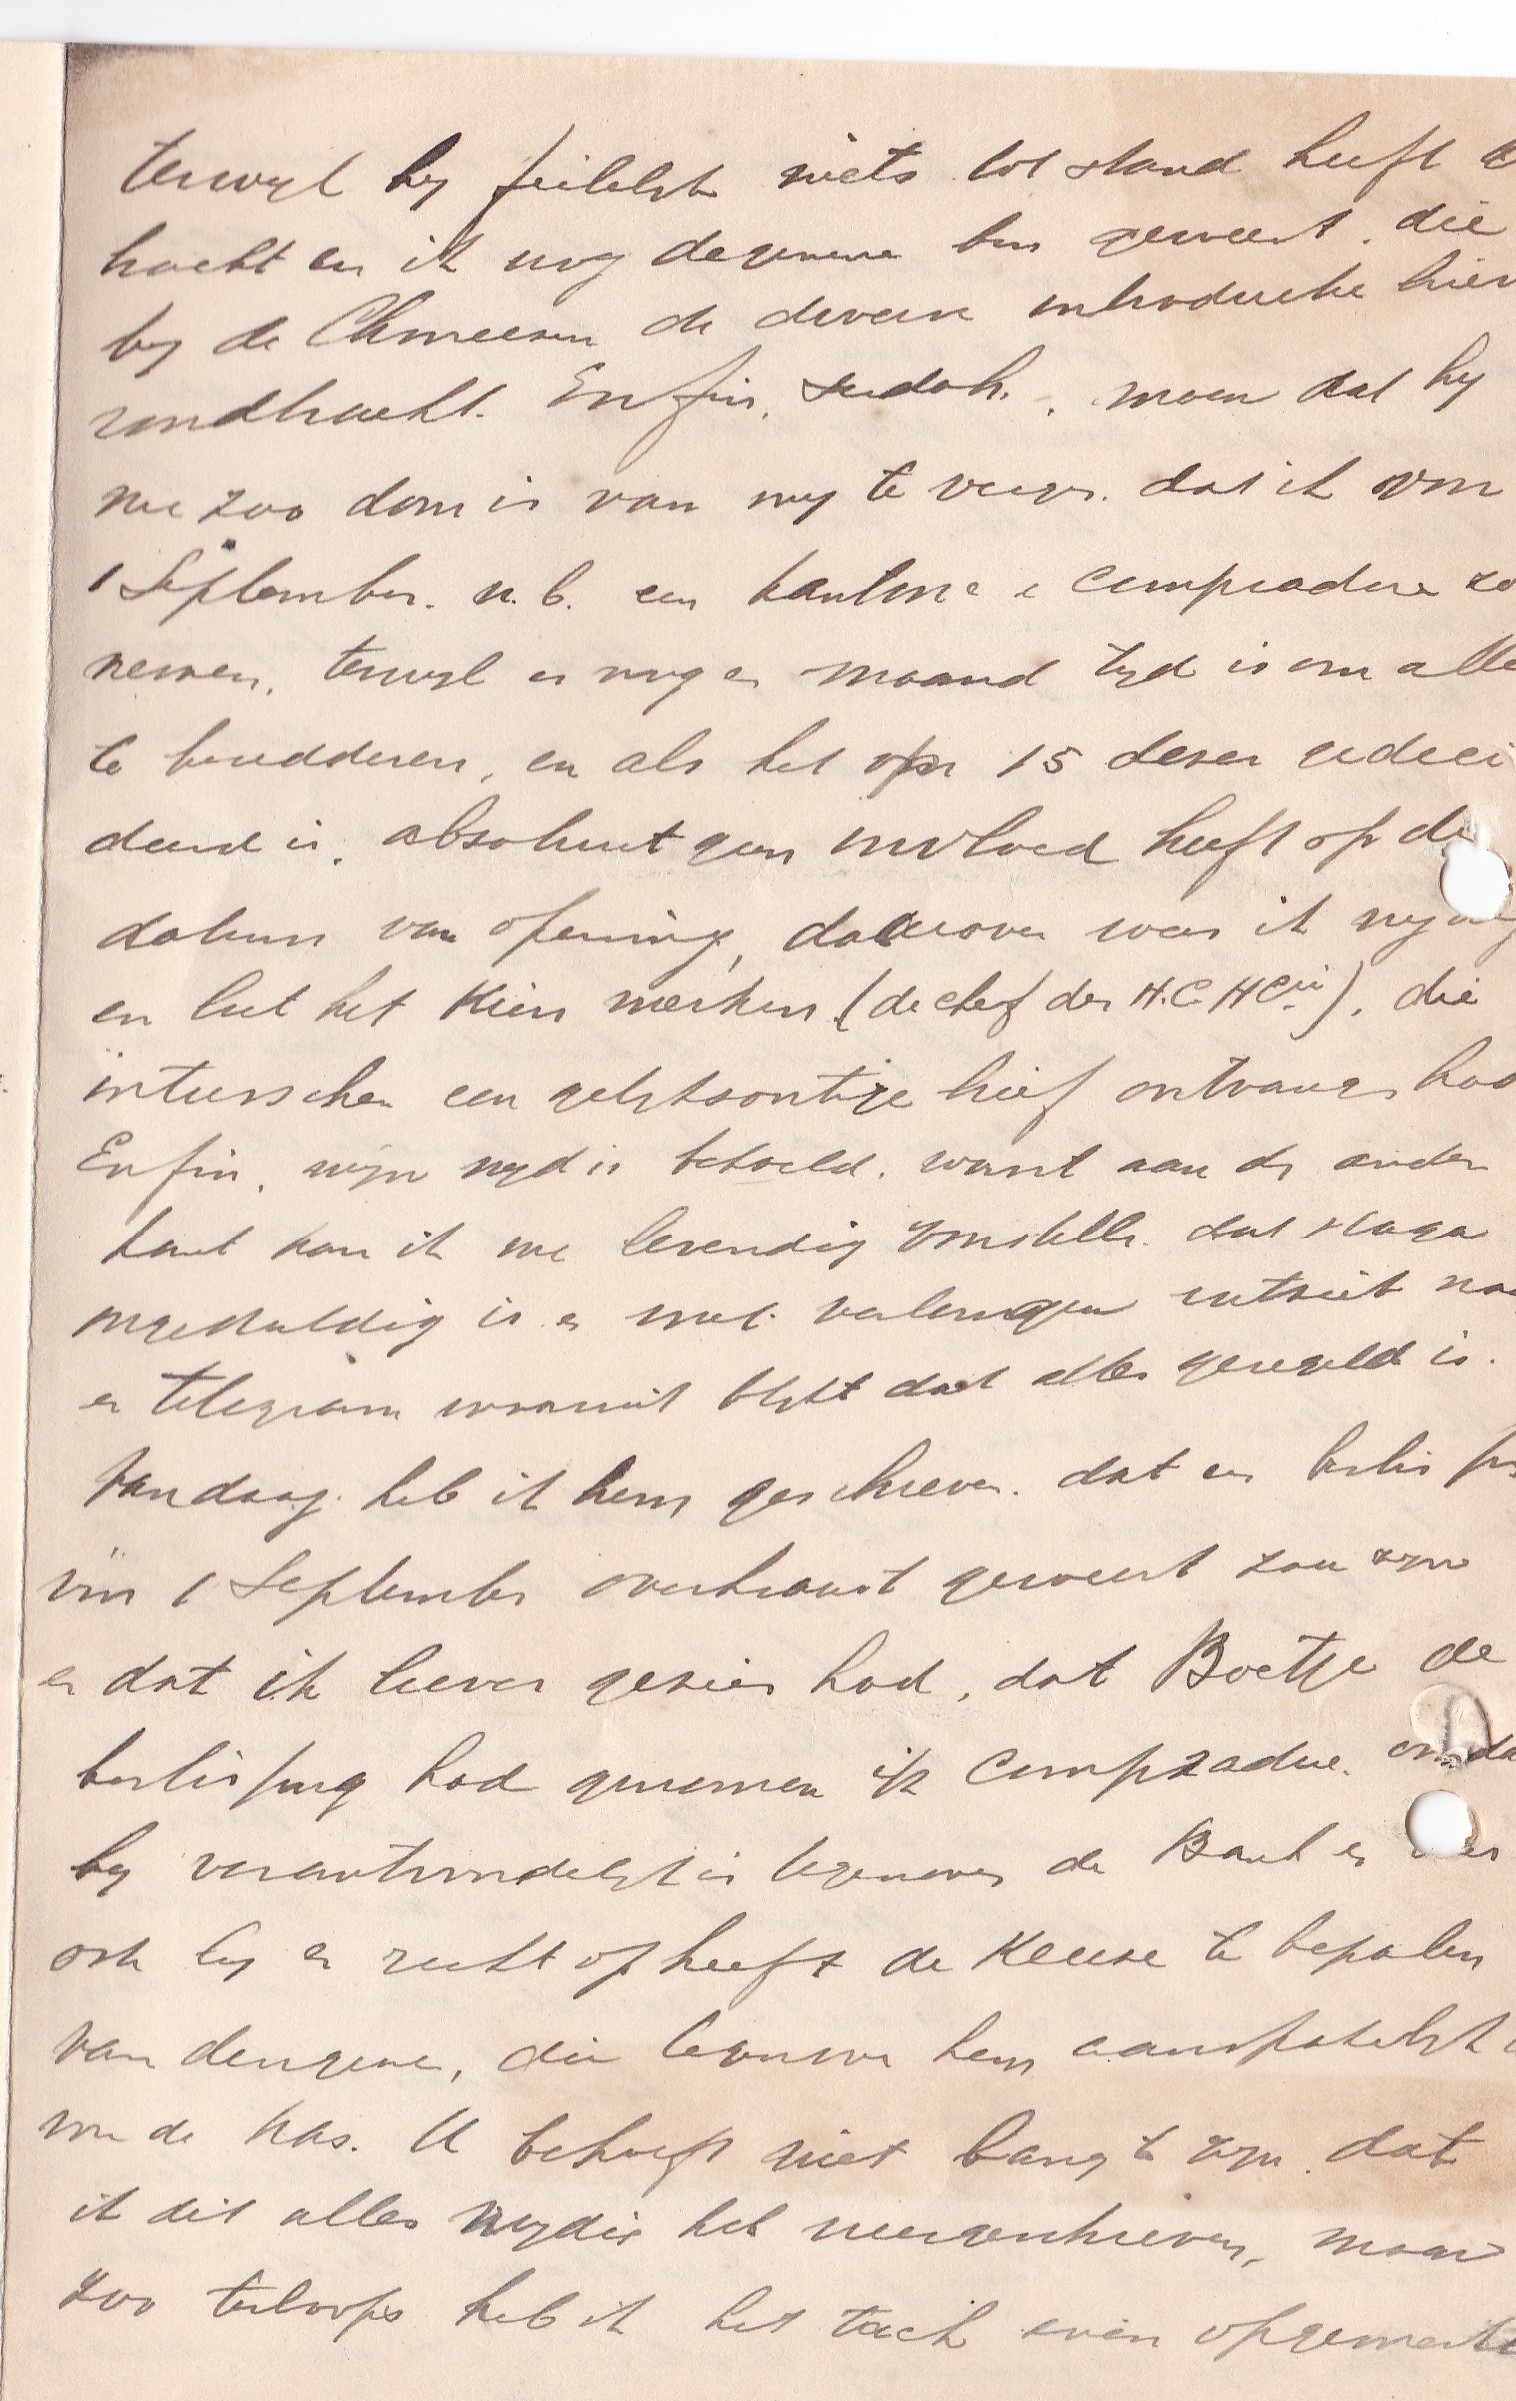 terwyl hy feitelyk niets tot stand heeft ge
bracht en ik nog degene ben geweest, die
by de Chineezen de diverse introductie hier
rondbracht. Enfin, sudah, maar dat hy
nu zoo dom is van my te vergen dat ik voor
1 September n.b. een kantoor & compradore zo
nemen, terwyl er nog een maand tyd is om alle
te beredderen, en als het per 15 dezer gedeci
deerd is, absoluut geen invloed heeft op de
datum van opening, daarover was ik nydig
en liet het Kien merken (de chef der H.C. HCii), die
intusschen een gelyksoortige brief ontvangen had
Enfin, mijn nyd is bekoeld, want aan de andere
kant kan ik me levendig voorstellen dat Haga
ongeduldig is en met verlangen uitziet naa
een telegram waaruit blykt dat alles geregeld is.
Vandaag heb ik hem geschreven dat een beslis sing
vóór 1 September overhaast geweest zou zyn
en dat ik liever gezien had, dat Boetje de
beslissing had genomen i/z Compradore omda
hy verantwoordelyk is tegenover de Bank en
ook hy er recht op heeft de keuze te bepalen
van dengene, die tegenover hem aansprakelyk i
voor de kas. U behoeft niet bang te zyn dat
ik dit alles nydig heb neergeschreven, maar
zoo terloops heb ik het toch even opgemerkt